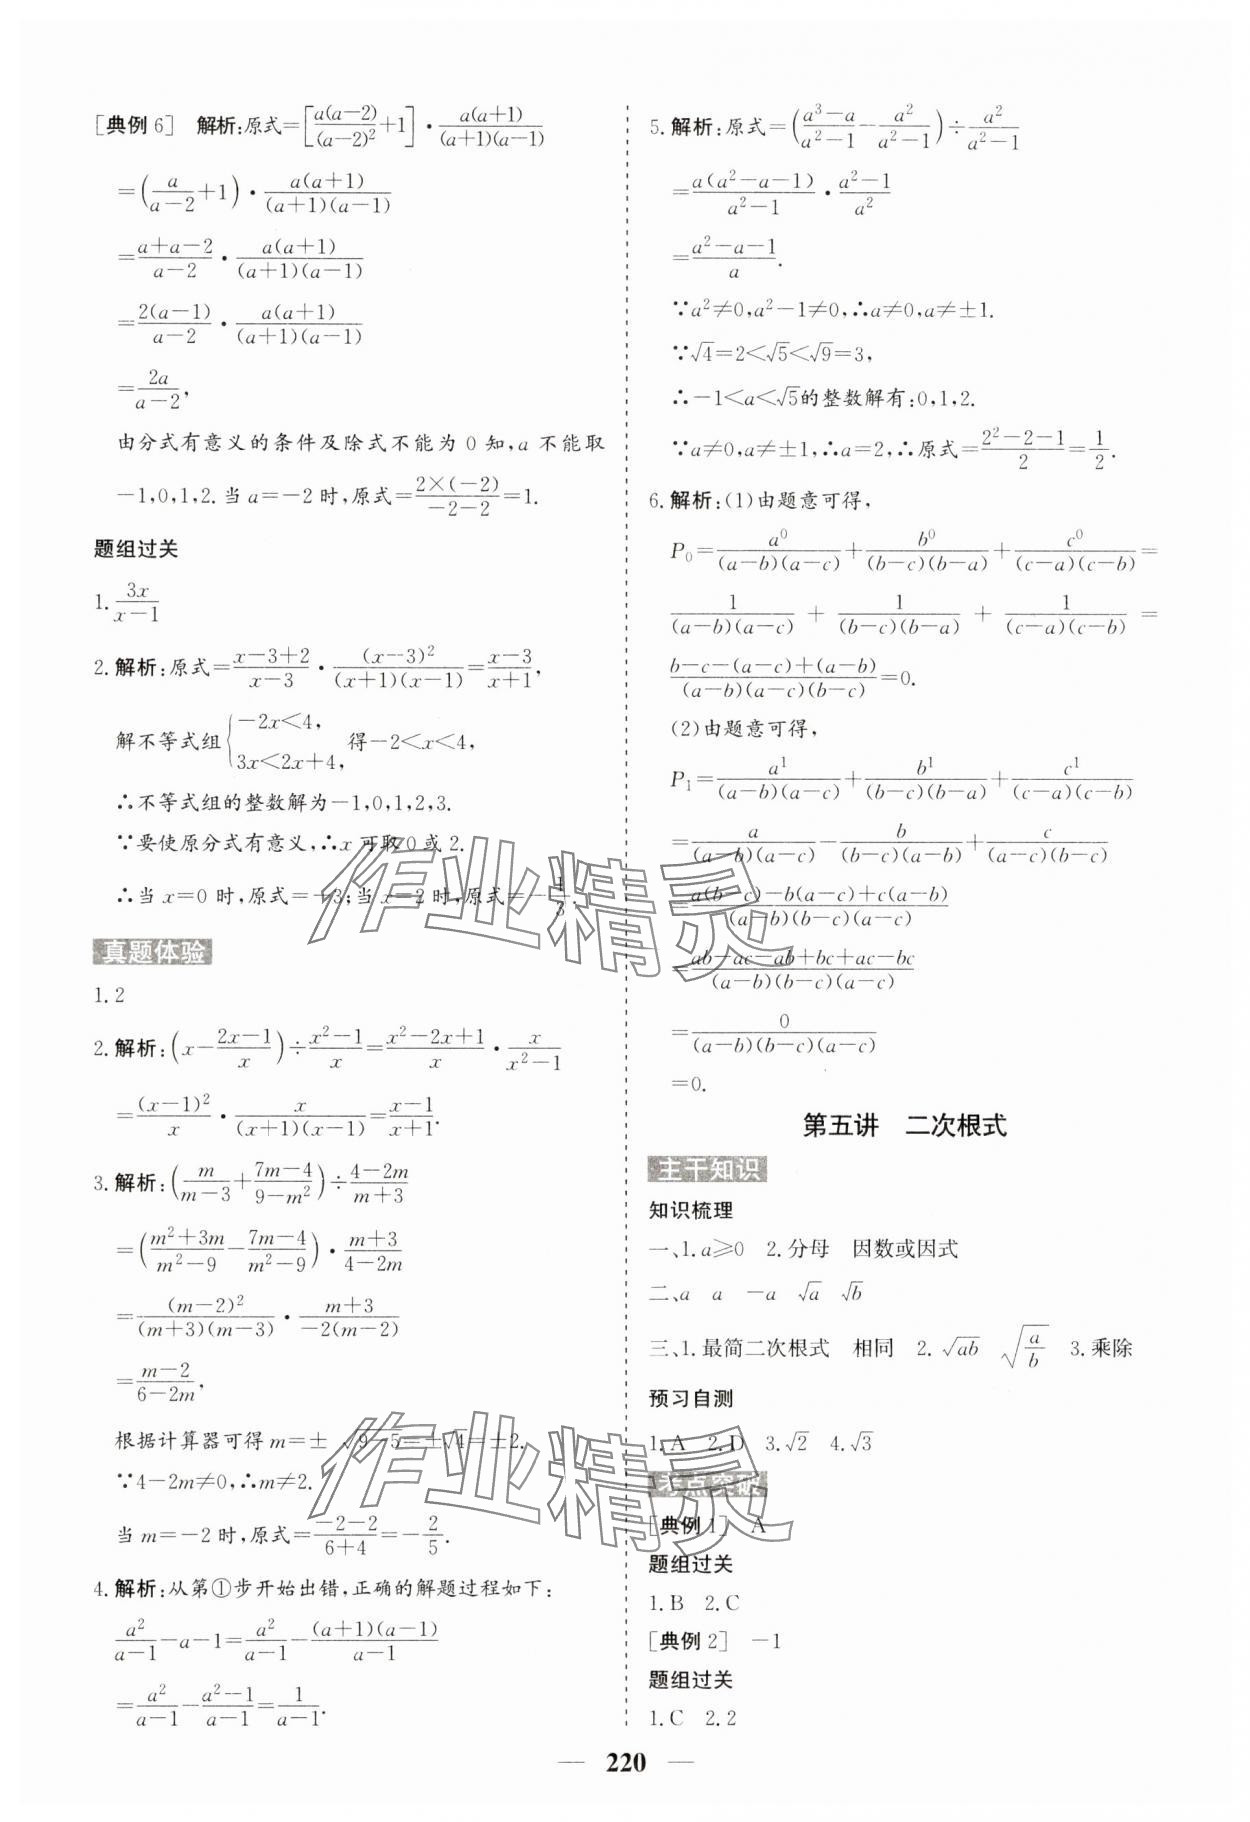 [典例 6] 解析:原式=[a(a-2)/(a-2)²+1]·a(a+1)/(a+1)(a-1)
=(a/(a-2)+1)·a(a+1)/(a+1)(a-1)
=(a+a-2)/(a-2)·a(a+1)/(a+1)(a-1)
=2(a-1)/(a-2)·a(a+1)/(a+1)(a-1)
=2a/(a-2),
由分式有意义的条件及除式不能为 0 知,a 不能取
-1,0,1,2.当 a=-2 时,原式=2×(-2)/(-2-2)=1.
题组过关
1.3x/(x-1)
2.解析:原式=(x-3+2)/(x-3)·(x-3)²/(x+1)(x-1)=(x-3)/(x+1),
解不等式组{-2x<4, 3x<2x+4, 得-2<x<4,
∴不等式组的整数解为-1,0,1,2,3.
∵要使原分式有意义,∴x 可取 0 或 2.
∴当 x=0 时,原式=-3;当 x=2 时,原式=-1/3.
真题体验
1.2
2.解析:(x-(2x-1)/x)÷(x²-1)/x=(x²-2x+1)/x·x/(x²-1)
=(x-1)²/x·x/(x+1)(x-1)=(x-1)/(x+1).
3.解析:(m/(m-3)+(7m-4)/(9-m²))÷(4-2m)/(m+3)
=((m²+3m)/(m²-9)-(7m-4)/(m²-9))·(m+3)/(4-2m)
=(m-2)²/(m+3)(m-3)·(m+3)/-2(m-2)
=(m-2)/(6-2m),
根据计算器可得 m=±√(9-5)=±√4=±2.
∵4-2m≠0,∴m≠2.
当 m=-2 时,原式=(-2-2)/(6+4)=-2/5.
4.解析:从第①步开始出错,正确的解题过程如下:
a²/(a-1)-a-1=a²/(a-1)-(a+1)(a-1)/(a-1)
=a²/(a-1)-(a²-1)/(a-1)=1/(a-1).
5.解析:原式=((a³-a)/(a²-1)-a²/(a²-1))÷a²/(a²-1)
=a(a²-a-1)/(a²-1)·(a²-1)/a²
=(a²-a-1)/a.
∵a²≠0,a²-1≠0,∴a≠0,a≠±1.
∵√4=2<√5<√9=3,
∴-1<a<√5的整数解有:0,1,2.
∵a≠0,a≠±1,∴a=2,∴原式=(2²-2-1)/2=1/2.
6.解析:(1)由题意可得,
P₀=a⁰/(a-b)(a-c)+b⁰/(b-c)(b-a)+c⁰/(c-a)(c-b)=
1/(a-b)(a-c)+1/(b-c)(b-a)+1/(c-a)(c-b)=
(b-c-(a-c)+(a-b))/(a-b)(a-c)(b-c)=0.
(2)由题意可得,
P₁=a¹/(a-b)(a-c)+b¹/(b-c)(b-a)+c¹/(c-a)(c-b)
=a/(a-b)(a-c)-b/(b-c)(a-b)+c/(a-c)(b-c)
=(a(b-c)-b(a-c)+c(a-b))/(a-b)(b-c)(a-c)
=(ab-ac-ab+bc+ac-bc)/(a-b)(b-c)(a-c)
=0/(a-b)(b-c)(a-c)
=0.
第五讲 二次根式
主干知识
知识梳理
一、1.a≥0 2.分母 因数或因式
二、a a -a √a √b
三、1.最简二次根式 相同 2.√ab √(a/b) 3.乘除
预习自测
1.A 2.D 3.√2 4.√3
考点突破
[典例 1] A
题组过关
1.B 2.C
[典例 2] -1
题组过关
1.C 2.2
— 220 —
作业精灵
作业精灵